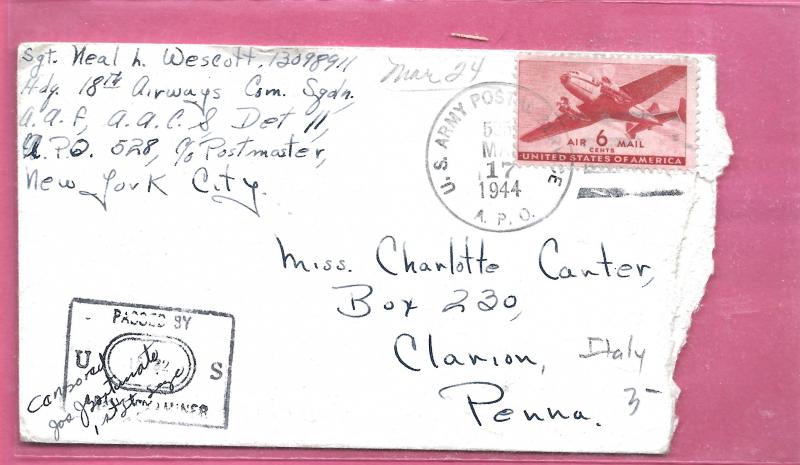 Sgt. Neal L. Wescott, 13098911
Hdq. 18th Airways Com. Sqdn.
A.A.F, A.A.C.S Det 11,
A.P.O. 528, c/o Postmaster,
New York City.
Mar 24
U.S. ARMY POSTAL
17
1944
A.P.O.
AIR 6 MAIL
CENTS
UNITED STATES OF AMERICA
Miss. Charlotte Canter,
Box 230,
Clarion,
Penna.
Italy
3-
PASSED BY
U S
Censored